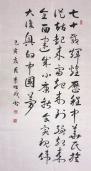 七十载辉煌历程中华民族
站起来富起来到强起来
全面建成小康社会实现伟
大復兴的中国梦
己亥